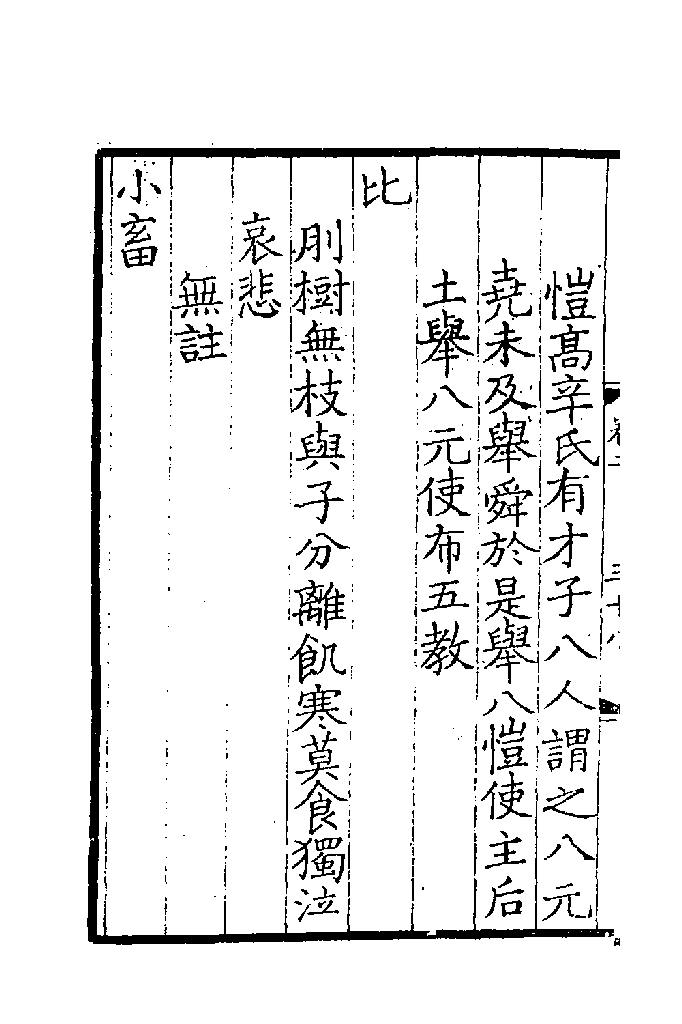 愷高辛氏有才子八人謂之八元
堯未及舉舜於是舉八愷使主后
土舉八元使布五教
比
刖樹無枝與子分離飢寒莫食獨泣
哀悲
無註
小畜